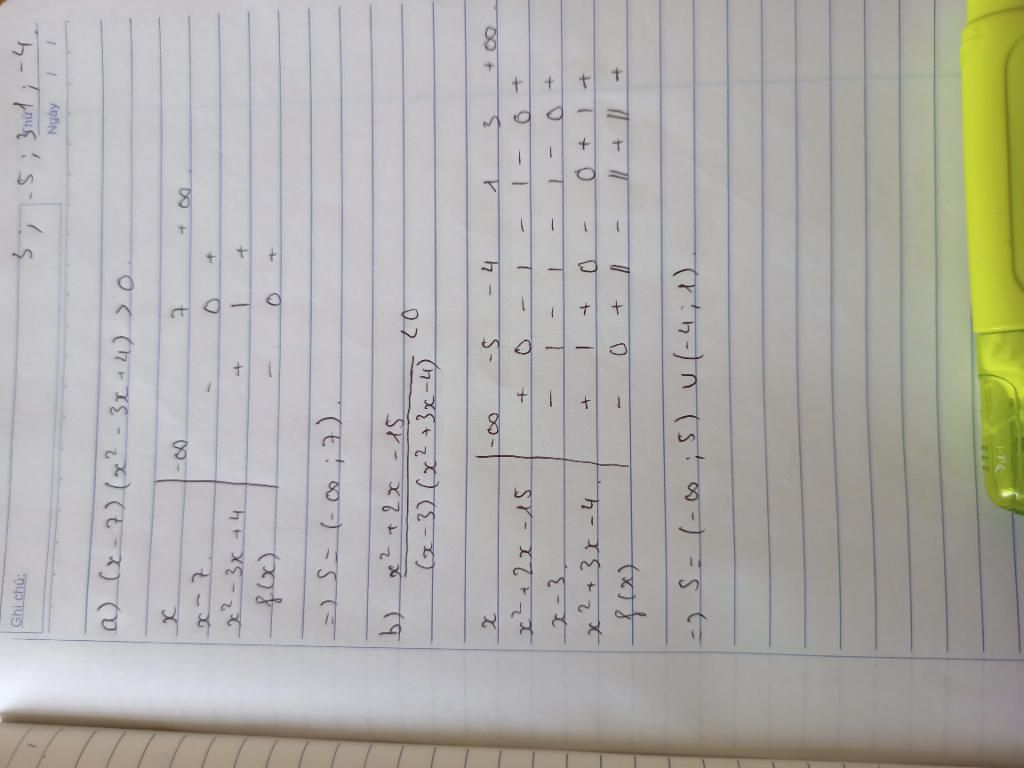 Ghi chú:
3; -5; 3; 1; -4
Thứ
Ngày / /
a) (x-7)(x² - 3x + 4) > 0
x -∞ 7 +∞
x-7 - 0 +
x² - 3x + 4 + | +
f(x) - 0 +
=) S = (-∞; 7).
b) x² + 2x - 15 / (x-3)(x² + 3x - 4) < 0
x -∞ -5 -4 1 3 +∞
x² + 2x - 15 + 0 - | - | - 0 +
x-3 - | - | - | - 0 +
x² + 3x - 4 + | + 0 - 0 + | +
f(x) - 0 + || - || + || +
=) S = (-∞; 5) ∪ (-4; 1).